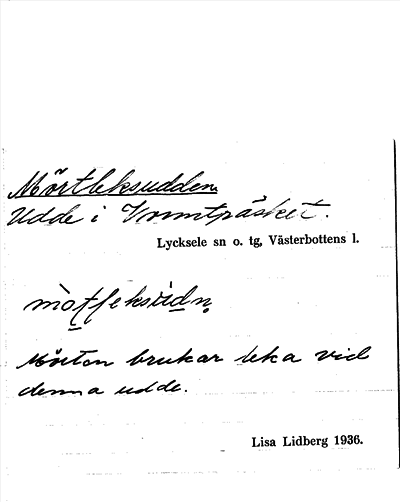 Mörtleksudden
Udde i träsket.
Lycksele sn o. tg, Västerbottens l.
Mörten brukar leka vid
denna udde.
Lisa Lidberg 1936.